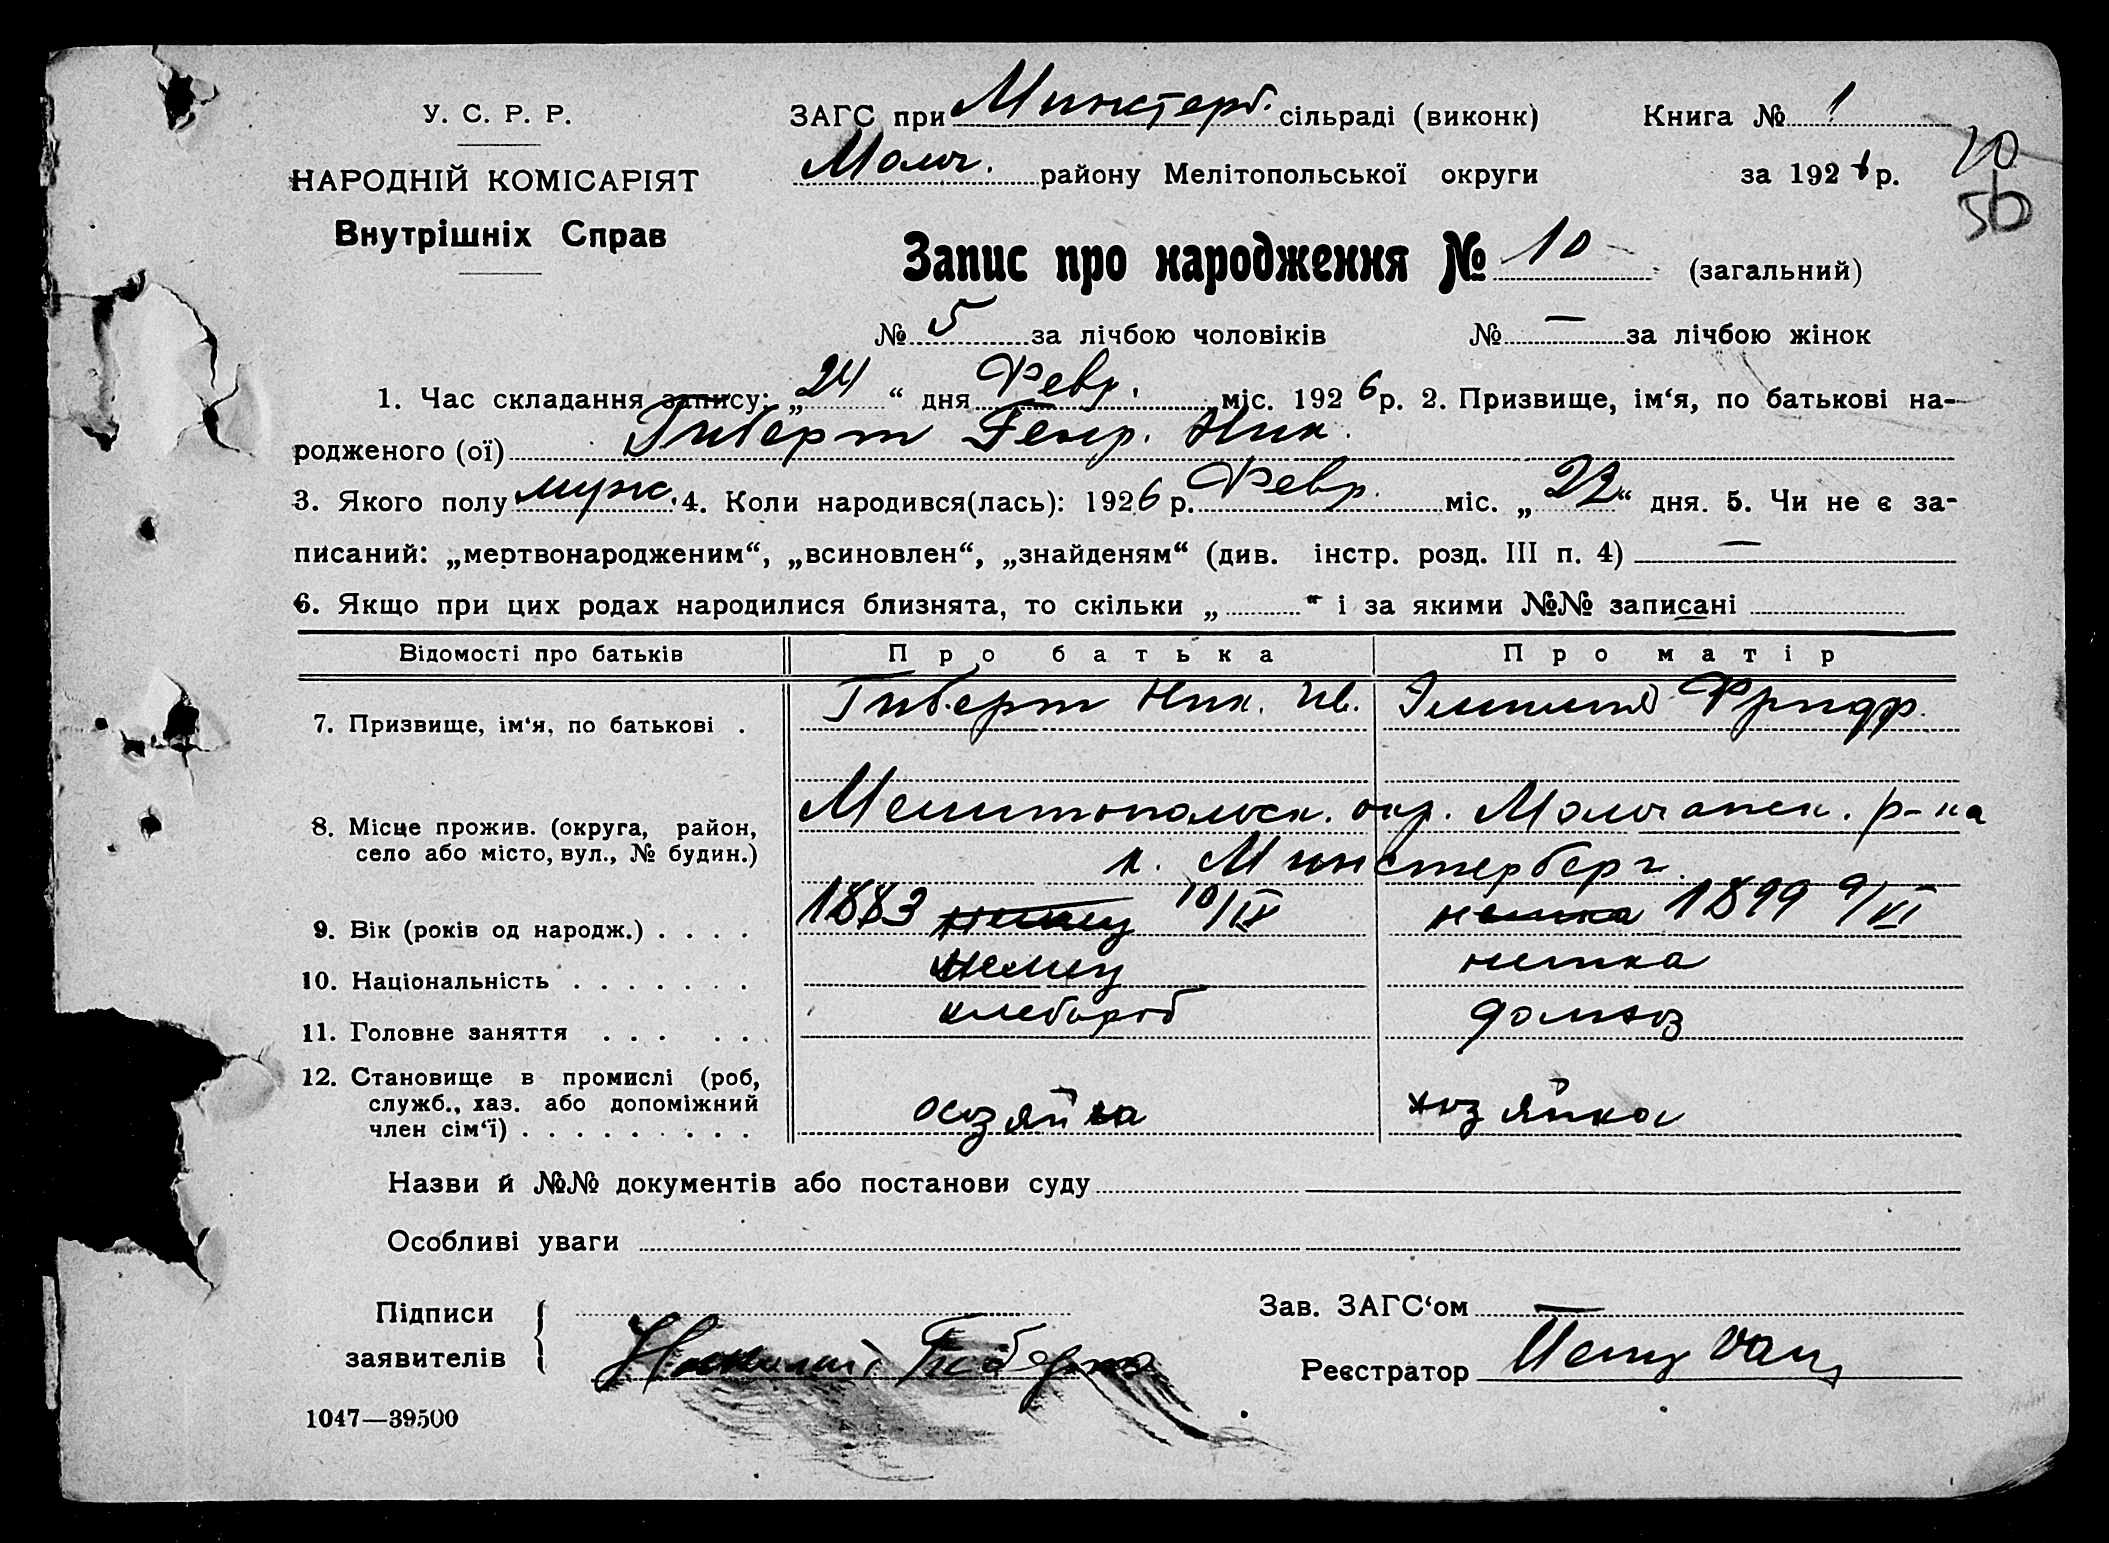 У. С. Р. Р.
НАРОДНІЙ КОМІСАРІЯТ
Внутрішніх Справ
ЗАГС при Минстерб. сільраді (виконк) Книга № 1
Молоч. району Мелітопольської округи за 1926 р.
10
56
Запис про народження № 10 (загальний)
№ 5 за лічбою чоловіків № — за лічбою жінок
1. Час складання запису: „24“ дня Февр. міс. 1926 р. 2. Призвище, ім‘я, по батькові на-
родженого (ої) Гиберт Генр. Ник.
3. Якого полу муж. 4. Коли народився(лась): 1926 р. Февр. міс. „22“ дня. 5. Чи не є за-
писаний: „мертвонародженим“, „всиновлен“, „знайденям“ (див. інстр. розд. III п. 4) —
6. Якщо при цих родах народилися близнята, то скільки „ “ і за якими №№ записані —
Відомості про батьків Про батька Про матір
7. Призвище, ім‘я, по батькові . Гиберт Ник. Ив. Эмилия Фридр.
8. Місце прожив. (округа, район, село або місто, вул., № будин.) Мелитопольск. окр. Молочанск. р-на
к. Минстерберг.
9. Вік (років од народж.) . . . . 1883 немец 10/IX немка 1899 9/VI
10. Національність . . . . . . . немец немка
11. Головне заняття . . . . . хлебороб домхоз
12. Становище в промислі (роб,
служб., хаз. або допоміжний
член сім‘ї) . . . . . . . . . хозяйка
Назви й №№ документів або постанови суду
Особливі уваги
Підписи
заявителів Николай Гиберт
Зав. ЗАГС‘ом —
Реєстратор
1047—39500